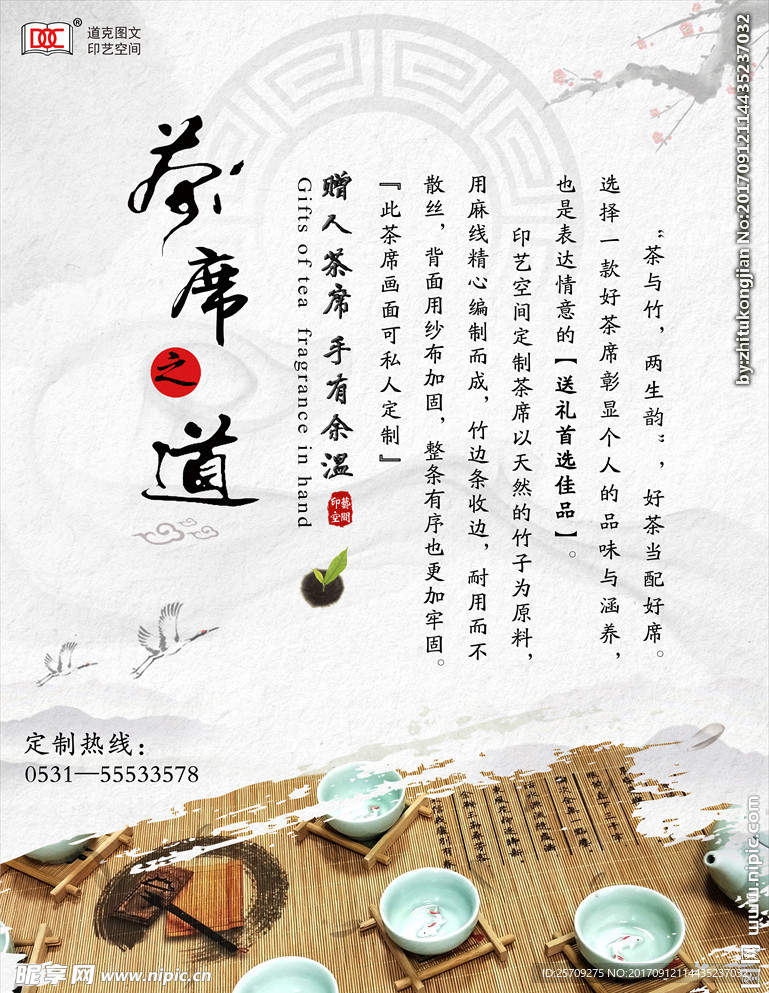 DOC®
道克图文
印艺空间
茶席之道
“茶与竹，两生韵”，好茶当配好席。
选择一款好茶席彰显个人的品味与涵养，
也是表达情意的【送礼首选佳品】。
印艺空间定制茶席以天然的竹子为原料，
用麻线精心编制而成，竹边条收边，耐用而不
散丝，背面用纱布加固，整条有序也更加牢固。
『此茶席画面可私人定制』
赠人茶席 手有余温
印藝空間
Gifts of tea fragrance in hand
定制热线：
0531—55533578
by:zhitukongjian No:20170912114435237032
昵享网 www.nipic.cn
ID:25709275 NO:20170912114435237032
www.nipic.com